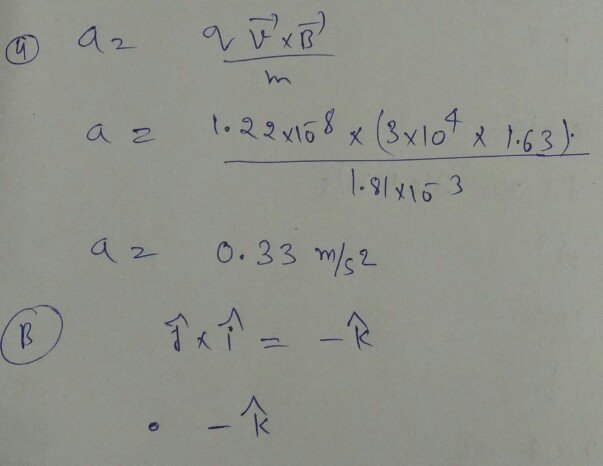 (4) a = q v⃗ × B⃗ / m
a = 1.22×10⁻⁸ × (3×10⁴ × 1.63). / 1.81×10⁻³
a = 0.33 m/s2
(B) ĵ × î = - k̂
• - k̂